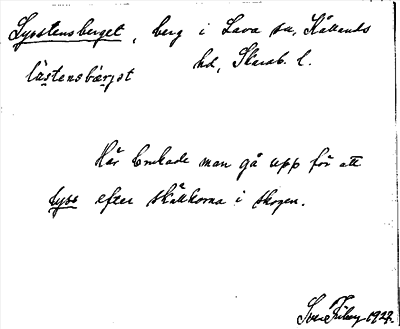 Lysstensberget, berg i Lava sn, Kållands
hd, Skarab. l.
lüstensbærjet
Här brukade man gå upp för att
lyss efter skällkorna i skogen.
1927.